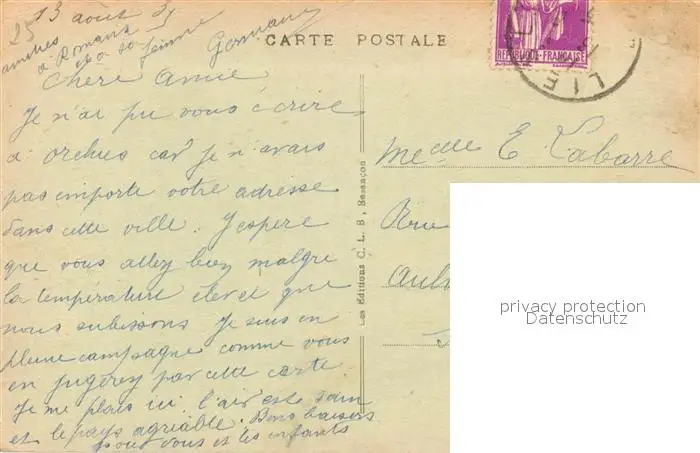 25
13 août 35
amitiés
à Romans
et à sa femme
Germaine
CARTE POSTALE
REPUBLIQUE-FRANÇAISE
Chère Amie
Je n'ai pu vous écrire
à Orchies car je n'avais
pas emporté votre adresse
dans cette ville. J'espère
que vous allez bien malgré
la température élevée que
nous subissons Je suis en
pleine campagne comme vous
en jugerez par cette carte
Je me plais ici l'air est sain
et le pays agréable. Bons baisers
pour vous et les enfants
Les Editions C. L. B., Besançon
Mme E Labarre
Rue
privacy protection
Datenschutz